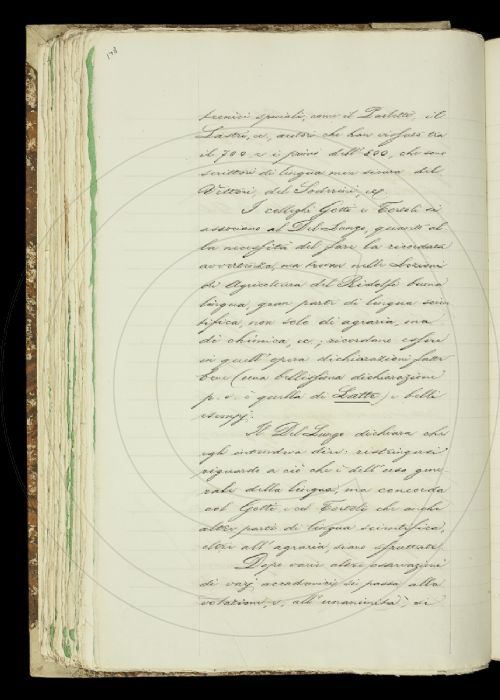 178
tecnici speciali, come il Paoletti, il
Lastri, ec., autori che han vissuto tra
il 700 e i primi dell' 800, che sono
scrittori di lingua men sicura del
Vettori, del Soderini, ec.
I colleghi Gotti e Tortoli si
associano al Del Lungo, quanto al
la necessità del fare la ricordata
avvertenza, ma trovan nelle Lezioni
di Agricoltura del Ridolfi buona
lingua, gran parte di lingua scien
tifica, non solo di agraria, ma
di chimica, ec.; ricordano esservi
in quell' opera dichiarazioni fatte
bene (una bellissima dichiarazione
p. e. è quella di Latte) e belli
esempj.
Il Del Lungo dichiara che
egli intendeva dire: restringersi
riguardo a ciò che è dell' uso gene
rale della lingua, ma concorda
col Gotti e col Tortoli che anche
altre parti di lingua scientifica,
oltre all' agraria, siano sfruttate.
Dopo varie altre osservazioni
di varj accademici si passa alla
votazione, e, all' unanimità, si